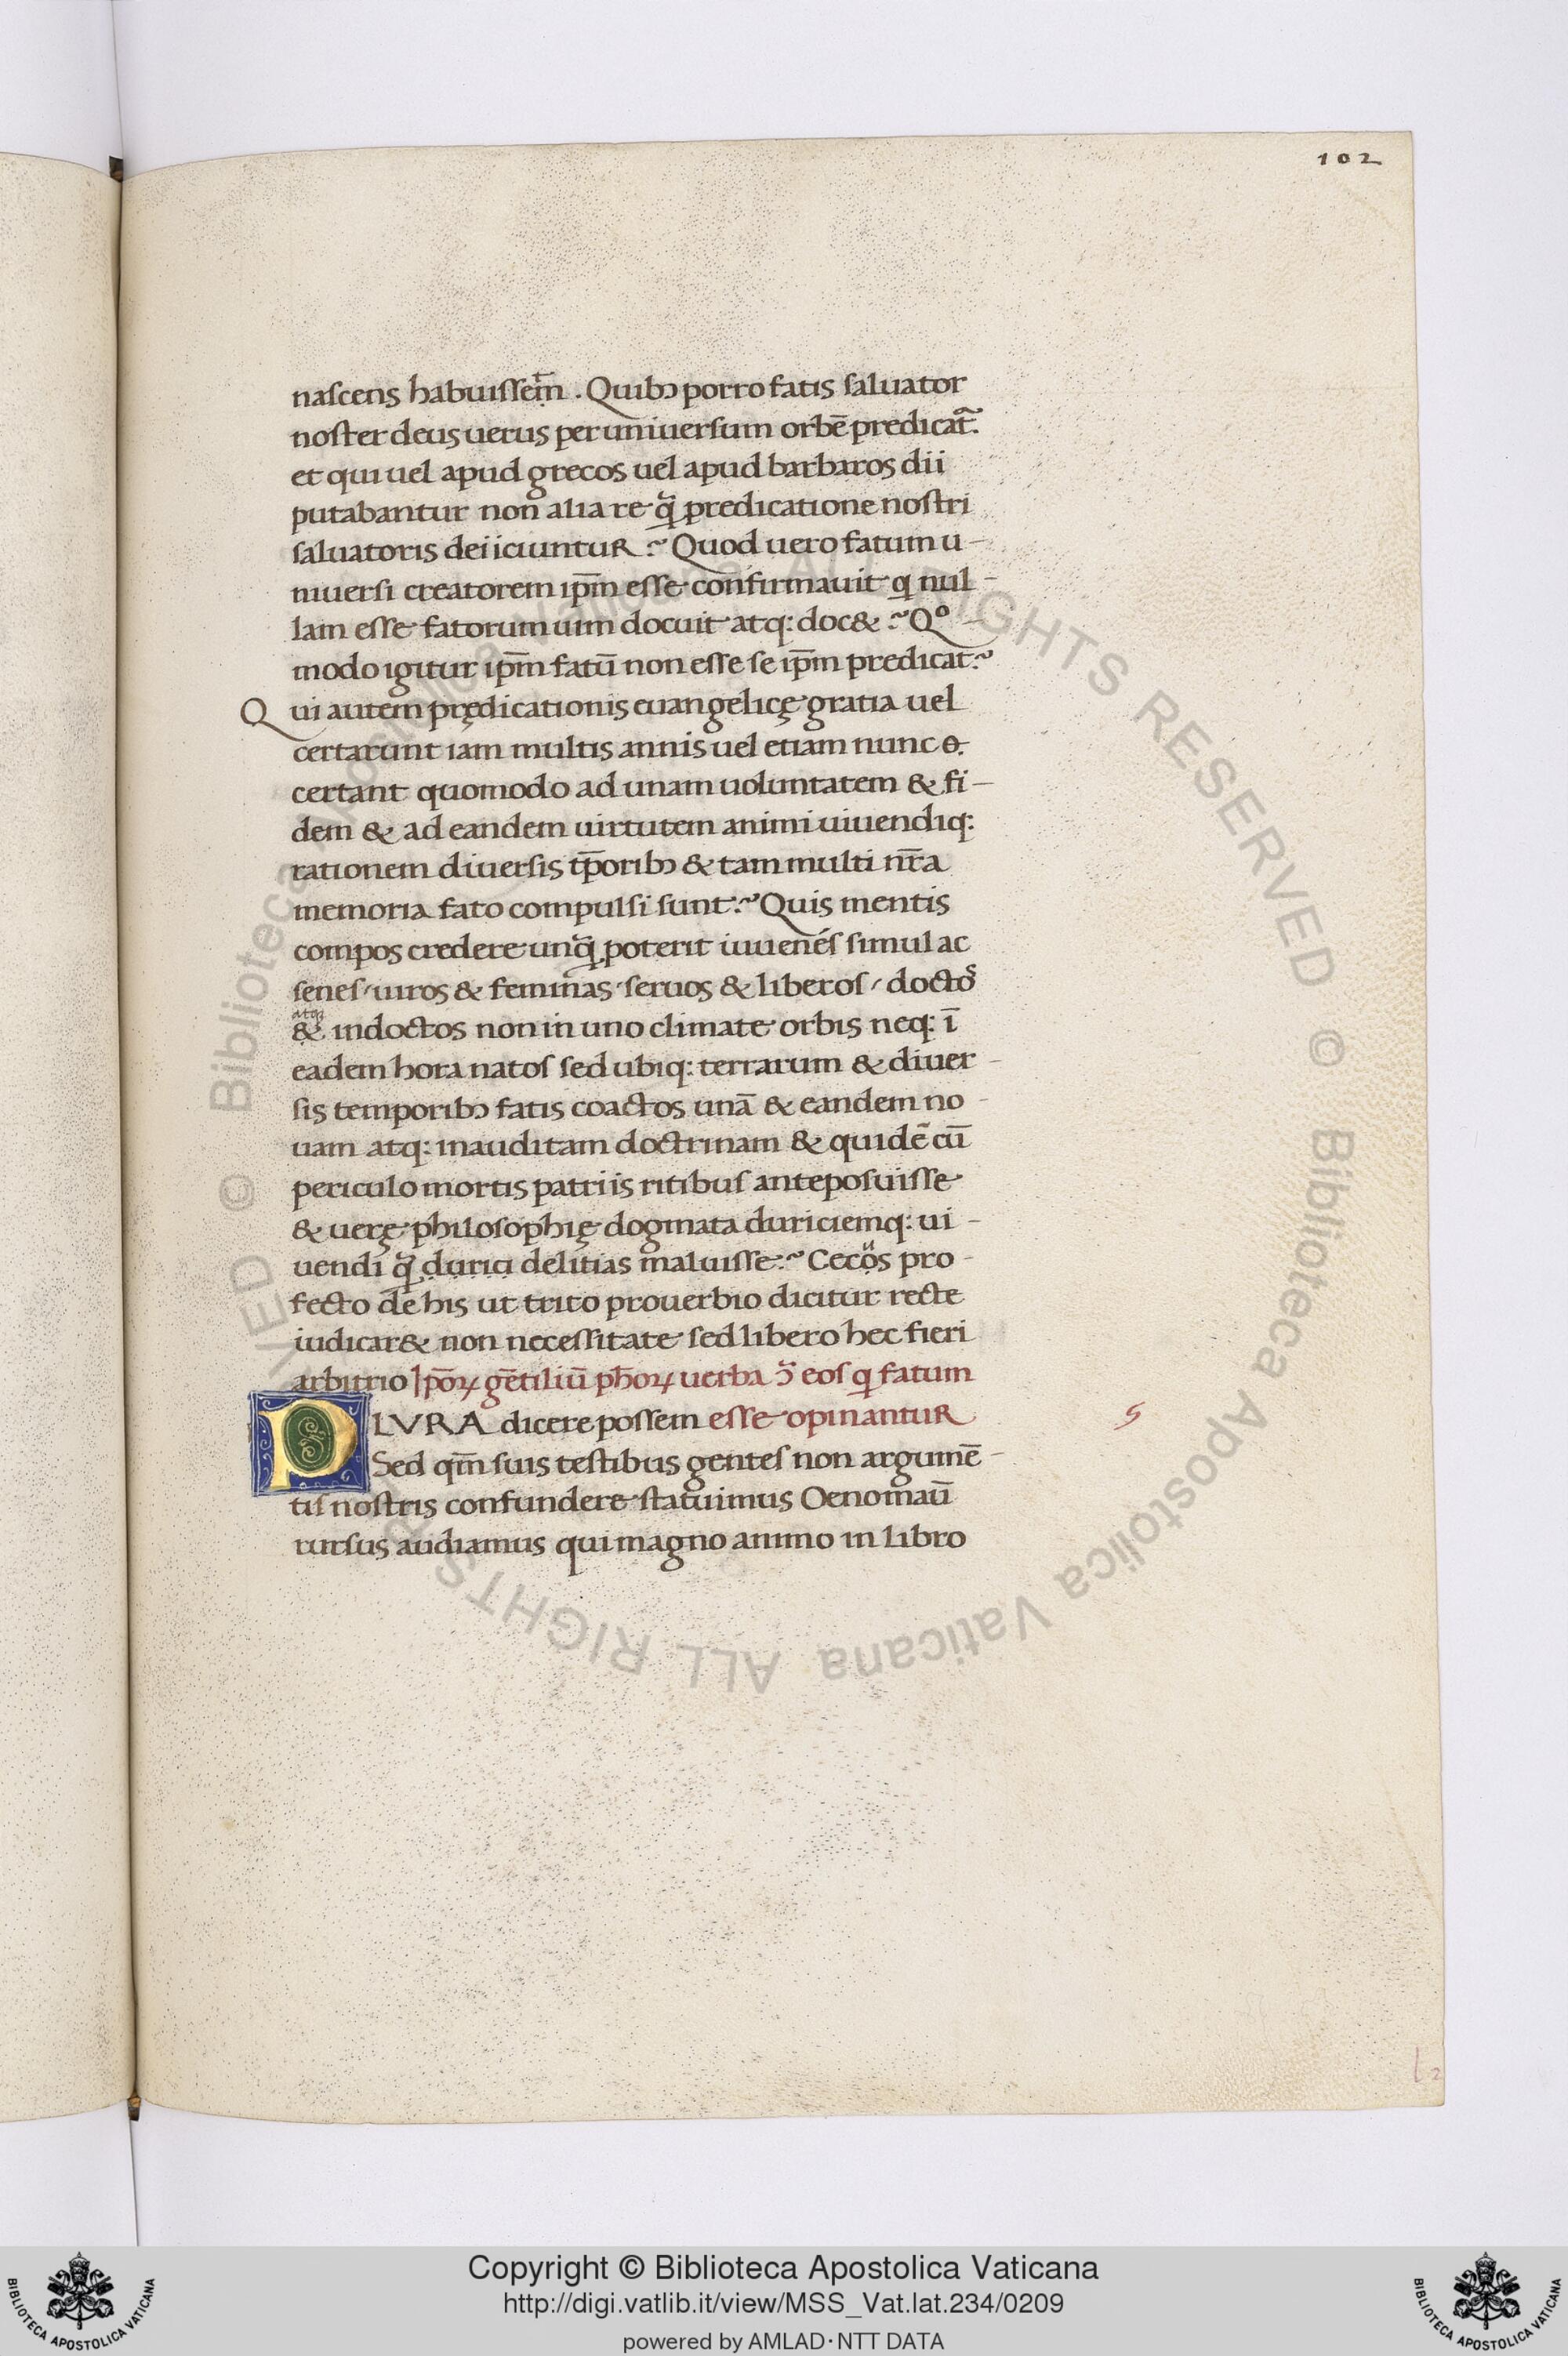 102
nascens habuissem̄. Quibꝰ porro fatis saluator
noster deus uerus per uniuersum orbē predicat᷑.
et qui uel apud grecos uel apud barbaros dii
putabantur non alia re q̃ predicatione nostri
saluatoris deiiciuntur? Quod uero fatum u-
niuersi creatorem ip̄m esse confirmauit q nul-
lam esse fatorum uim docuit atq: doc&? Qº-
modo igitur ip̄m fatū non esse se ip̄m predicat?
Qui autem prędicationis euangelicę gratia uel
certarunt iam multis annis uel etiam nunc
certant quomodo ad unam uoluntatem & fi-
dem & ad eandem uirtutem animi uiuendiq:
rationem diuersis tp̄oribꝰ & tam multi nr̄a
memoria fato compulsi sunt? Quis mentis
compos credere unq̃ poterit iuuenes simul ac
senes/uiros & feminas/seruos & liberos/doctos
atq
& indoctos non in uno climate orbis neq: ī
eadem hora natos sed ubiq: terrarum & diuer-
sis temporibꝰ fatis coactos unā & eandem no-
uam atq: inauditam doctrinam & quidē cū
periculo mortis patriis ritibus anteposuisse
& uerę philosophię dogmata duriciemq: ui-
uendi q̃ durici delitias maluisse? Cecos pro-
u
fecto de his ut trito prouerbio dicitur recte
iudicar& non necessitate sed libero hec fieri
arbitrio Ip̄oꝝ gētiliū ph̄oꝝ uerba ↄ̃ eos q fatum
PLVRA dicere possem esse opinantur
5
Sed qm̄ suis testibus gentes non argumē-
tis nostris confundere statuimus Oenomaū
rursus audiamus qui magno animo in libro
l 2
© Biblioteca Apostolica Vaticana ALL RIGHTS RESERVED © Biblioteca Apostolica Vaticana ALL RIGHTS RESERVED
BIBLIOTECA APOSTOLICA VATICANA
Copyright © Biblioteca Apostolica Vaticana
http://digi.vatlib.it/view/MSS_Vat.lat.234/0209
powered by AMLAD·NTT DATA
BIBLIOTECA APOSTOLICA VATICANA